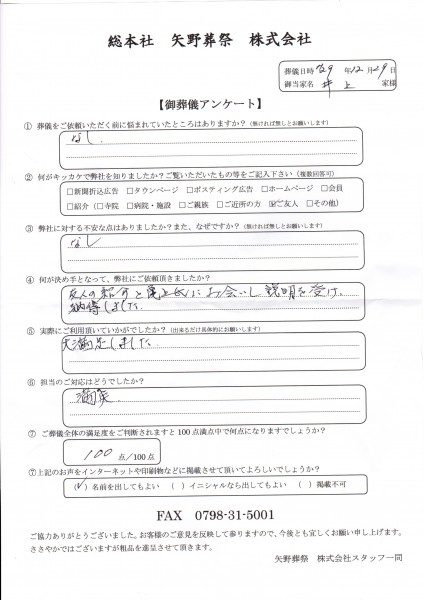 総本社 矢野葬祭 株式会社
葬儀日時 29年12月29日
御当家名 井上 家様
【御葬儀アンケート】
① 葬儀をご依頼いただく前に悩まれていたところはありますか?(無ければ無しとお願いします)
なし
② 何がキッカケで弊社を知りましたか?ご覧いただいたもの等をご記入下さい(複数回答可)
□新聞折込広告 □タウンページ □ポスティング広告 □ホームページ □会員
□紹介(□寺院 □病院・施設 □ご親族 □ご近所の方 ☑ご友人 □その他)
③ 弊社に対する不安な点はありましたか?また、なぜですか?(無ければ無しとお願いします)
なし
④ 何が決め手となって、弊社にご依頼頂きましたか?
友人の紹介と尾上氏にお会いし説明を受け、
納得しました。
⑤ 実際にご利用頂いていかがでしたか?(出来るだけ具体的にお願いします)
大満足しました
⑥ 担当のご対応はどうでしたか?
満足
⑦ ご葬儀全体の満足度をご判断されますと100点満点中で何点になりますでしょうか?
100点/100点
⑦上記のお声をインターネットや印刷物などに掲載させて頂いてよろしいでしょうか?
(✓)名前を出してもよい ( )イニシャルなら出してもよい ( )掲載不可
FAX 0798-31-5001
ご協力ありがとうございました。お客様のご意見を反映して参りますので、今後とも宜しくお願い申し上げます。
ささやかではございますが粗品を進呈させて頂きます。
矢野葬祭 株式会社スタッフ一同